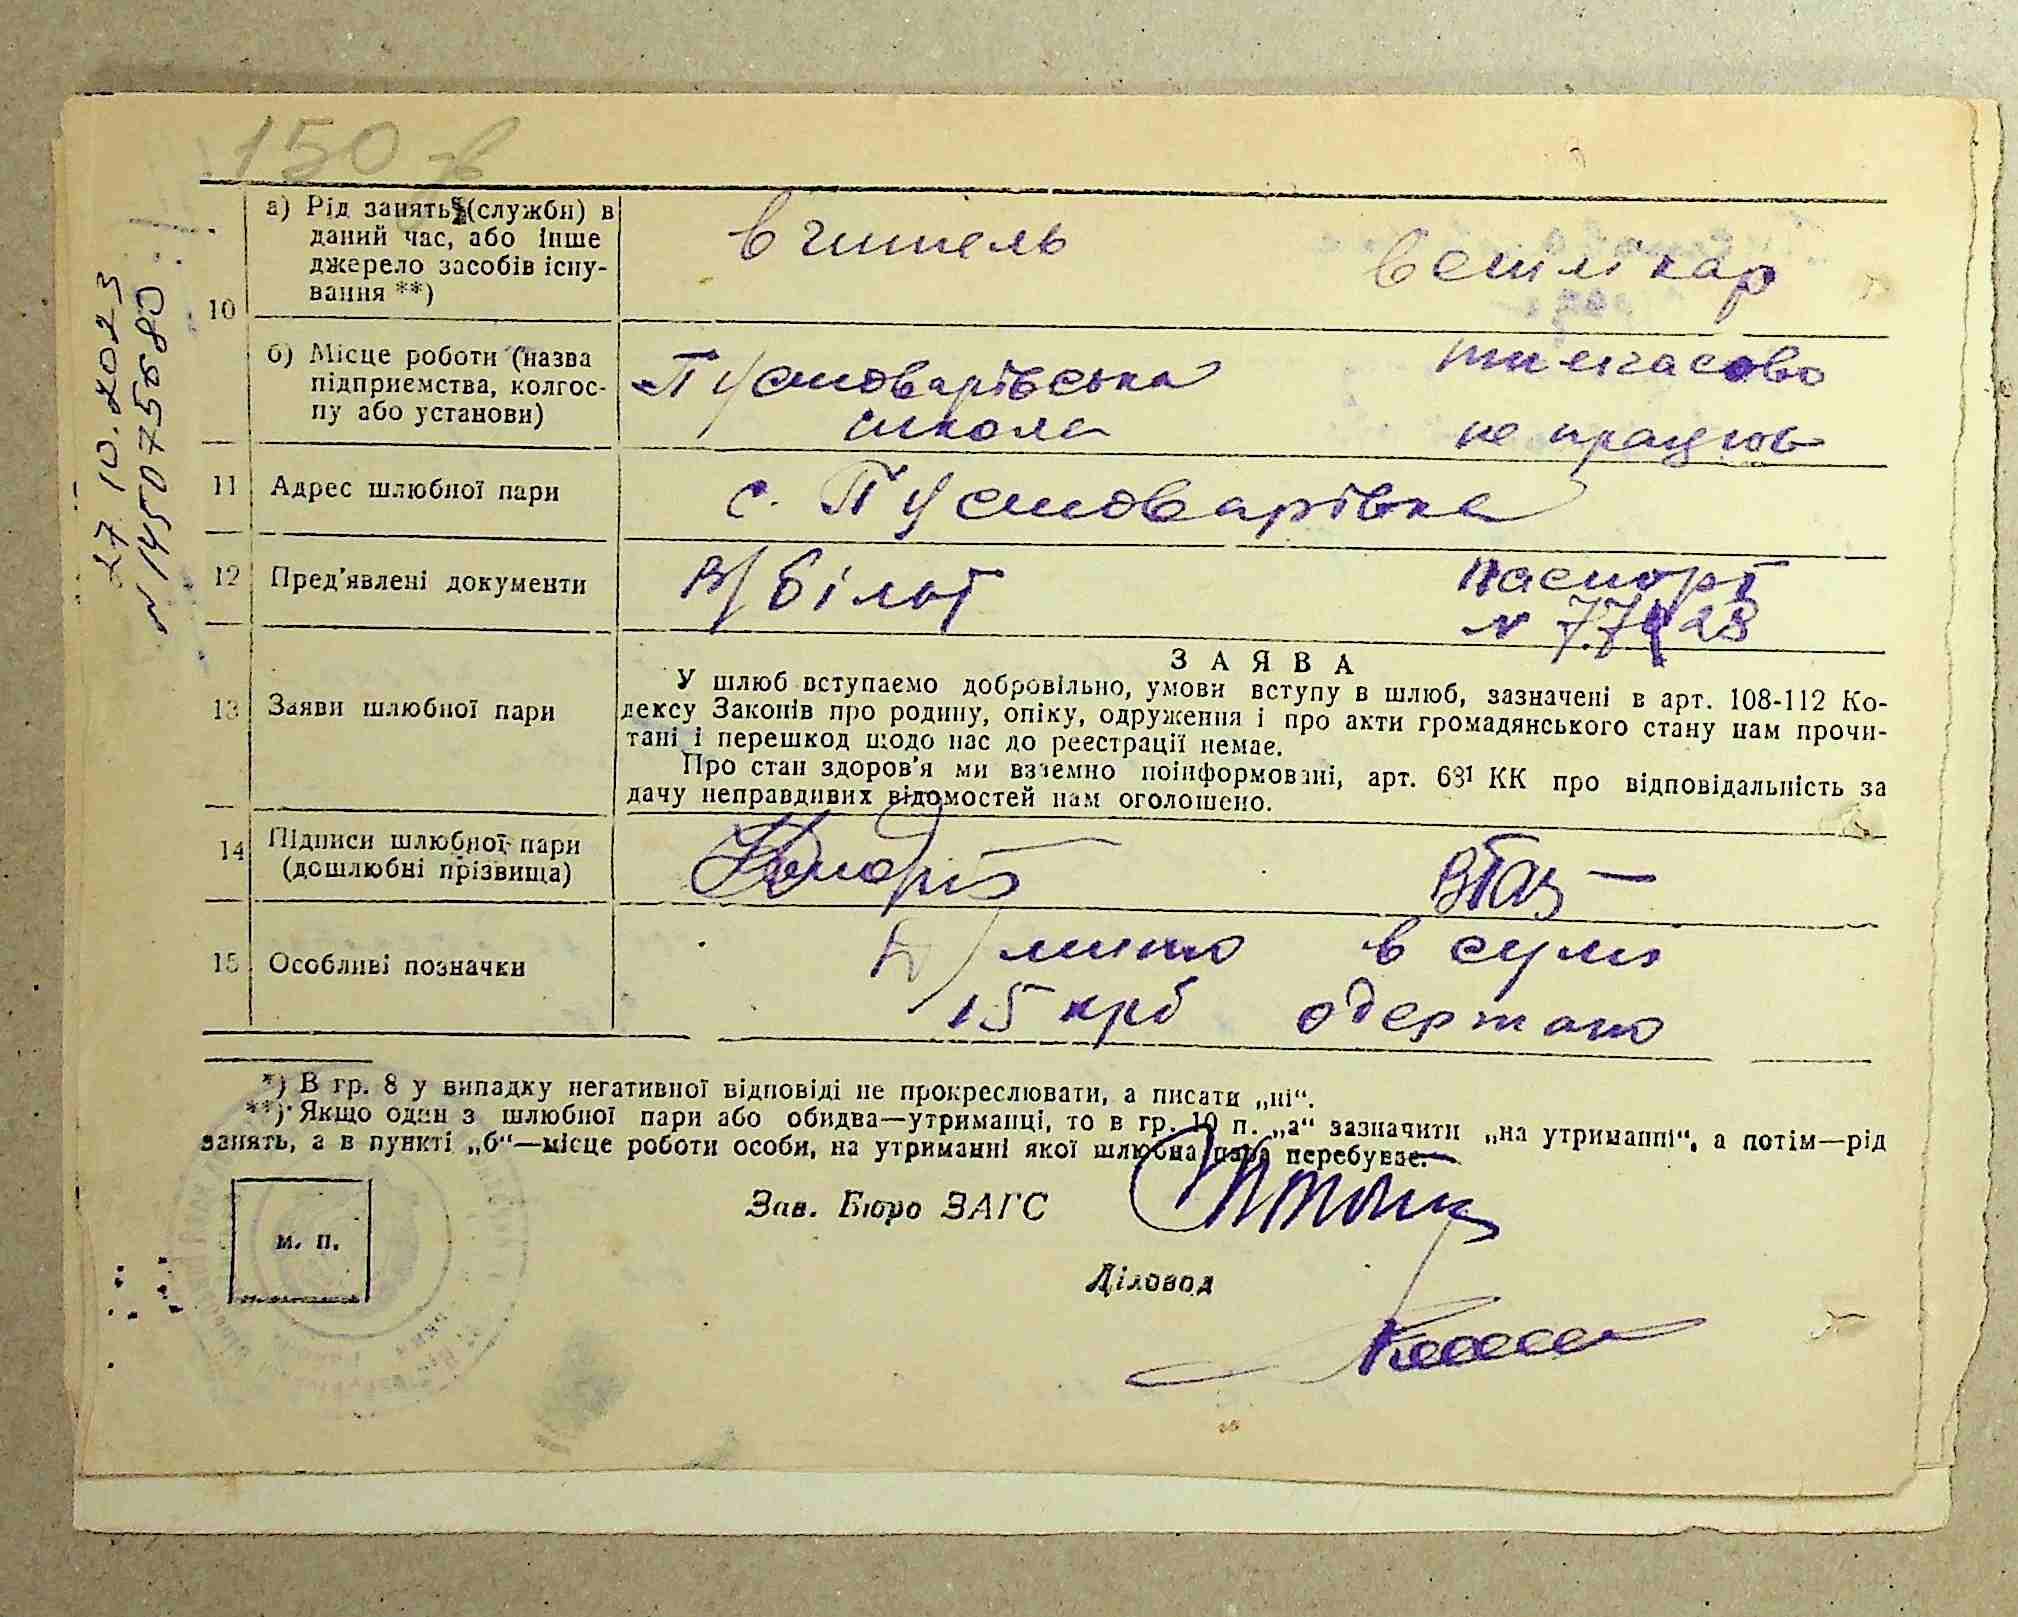 150 зв
27.10.2023
N 14507505680
10
а) Рід занять (служби) в
даний час, або інше
джерело засобів існу-
вання **)
вчитель
ветлікар
б) Місце роботи (назва
підприємства, колгос-
пу або установи)
Пустоварівська
школа
тимчасово
не працює
11 Адрес шлюбної пари
с. Пустоварівка
12 Пред'явлені документи
в/білєт
паспорт
N
13 Заяви шлюбної пари
ЗАЯВА
У шлюб вступаємо добровільно, умови вступу в шлюб, зазначені в арт. 108-112 Ко-
дексу Законів про родину, опіку, одруження і про акти громадянського стану нам прочи-
тані і перешкод щодо нас до реєстрації немає.
Про стан здоров'я ми взаємно поінформовані, арт. 68¹ КК про відповідальність за
дачу неправдивих відомостей нам оголошено.
14 Підписи шлюбної пари
(дошлюбні прізвища)
15 Особливі позначки
Д/мито в сумі
15 крб одержано
*) В гр. 8 у випадку негативної відповіді не прокреслювати, а писати „ні“.
**) Якщо один з шлюбної пари або обидва—утриманці, то в гр. 10 п. „а“ зазначити „на утриманні“, а потім—рід
занять, а в пункті „б“—місце роботи особи, на утриманні якої шлюбна пара перебуває.
Зав. Бюро ЗАГС
м. п.
Діловод